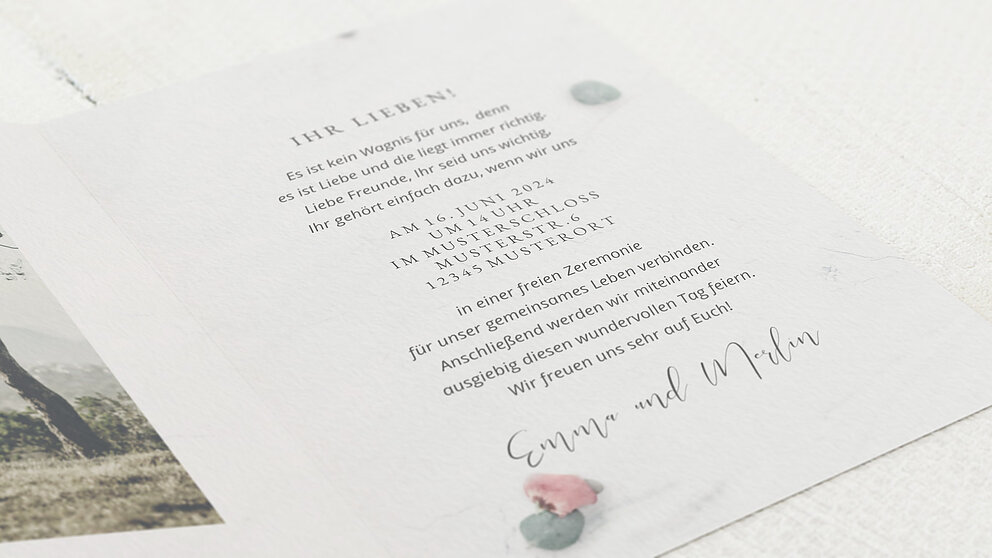 IHR LIEBEN!
Es ist kein Wagnis für uns, denn
es ist Liebe und die liegt immer richtig.
Liebe Freunde, Ihr seid uns wichtig,
Ihr gehört einfach dazu, wenn wir uns
AM 16. JUNI 2024
UM 14 UHR
IM MUSTERSCHLOSS
MUSTERSTR. 6
12345 MUSTERORT
in einer freien Zeremonie
für unser gemeinsames Leben verbinden.
Anschließend werden wir miteinander
ausgiebig diesen wundervollen Tag feiern.
Wir freuen uns sehr auf Euch!
Emma und Merlin